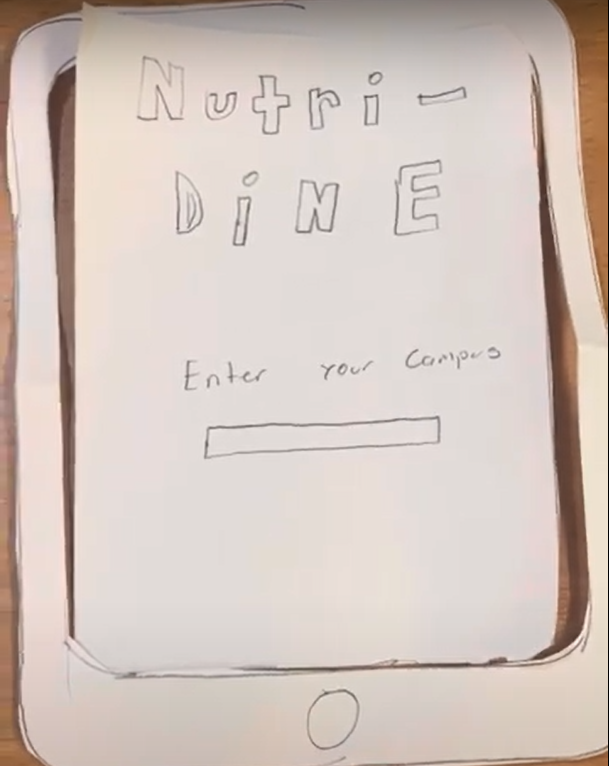 Nutri-
DiNE
Enter your campus